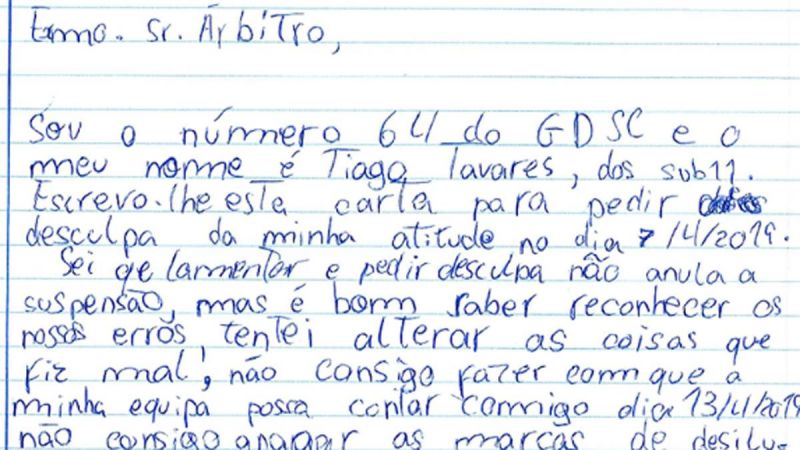 Exmo. Sr. Árbitro,
Sou o número 64 do GDSC e o
meu nome é Tiago Tavares, dos sub11.
Escrevo-lhe esta carta para pedir
desculpa da minha atitude no dia 7/4/2019.
Sei qe lamentar e pedir desculpa não anula a
suspensão, mas é bom saber reconhecer os
nossos erros, tentei alterar as coisas que
fiz mal, não consigo fazer com que a
minha equipa possa contar comigo dia 13/4/2019
não consigo apagar as marcas de desilu-